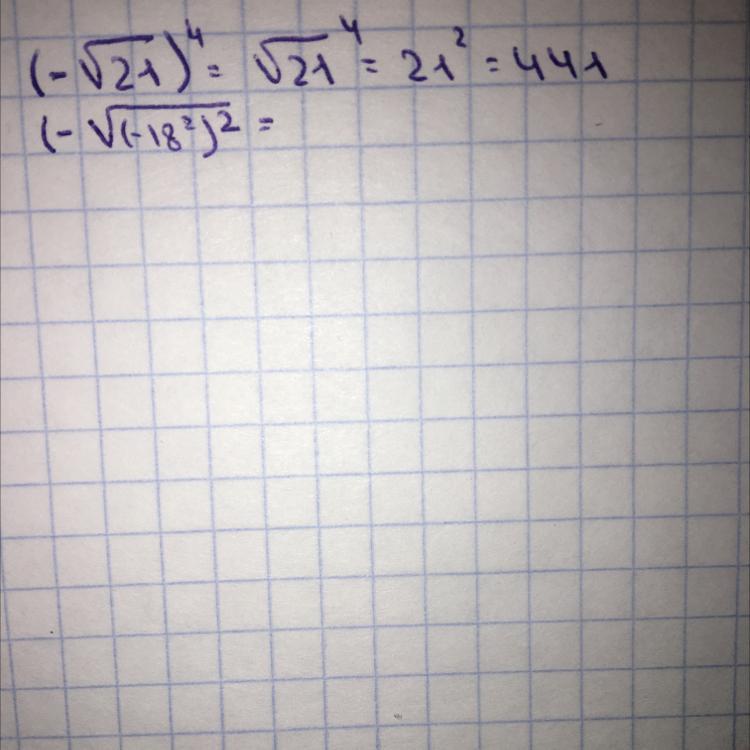 (-√21)⁴ = √21⁴ = 21² = 441
(-√(-18²)² =